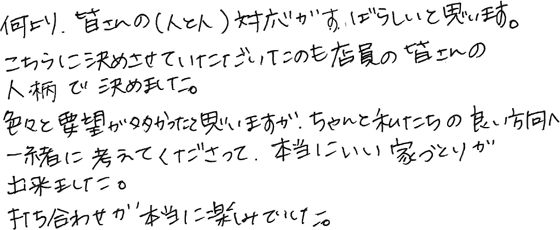 何より、皆さんの(人と人)対応がすばらしいと思います。
こちらに決めさせていただいたのも店員の皆さんの
人柄で決めました。
色々と要望が多かったと思いますが、ちゃんと私たちの良い方向へ
一緒に考えてくださって、本当にいい家づくりが
出来ました。
打ち合わせが本当に楽しみでした。